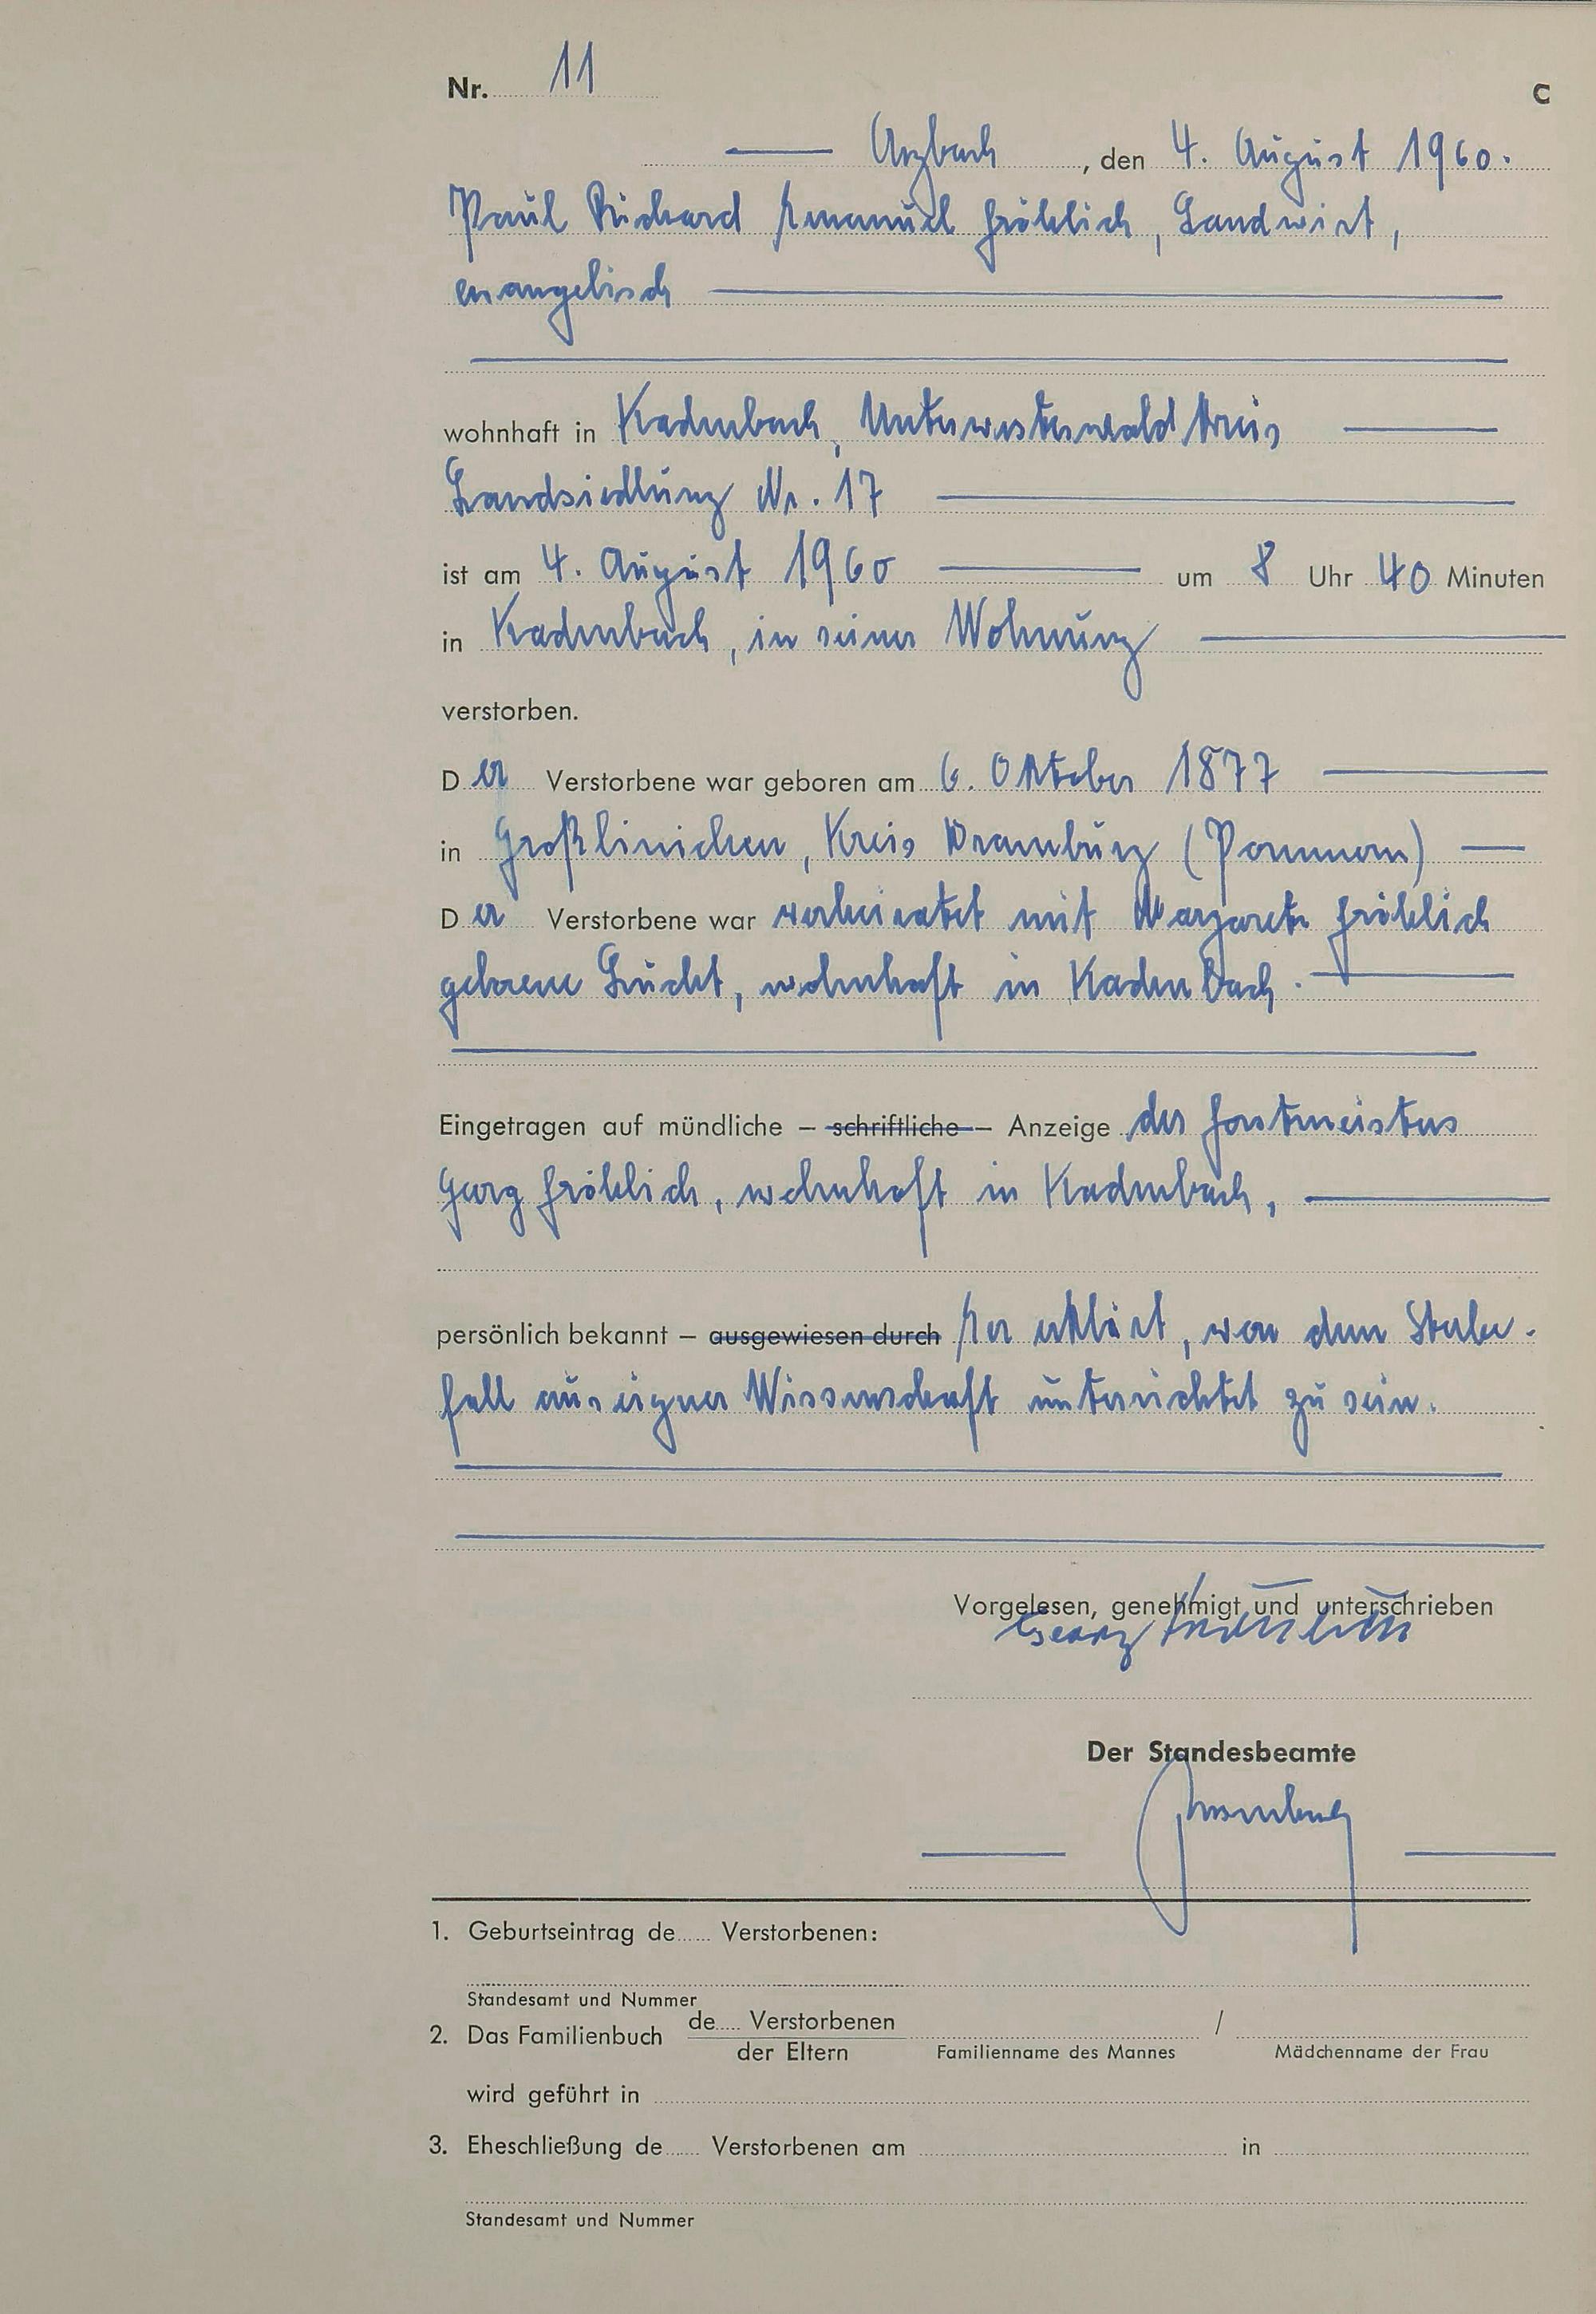 Nr. 11
C
Arzbach, den 4. August 1960.
Paul Richard Emanuel Fröhlich, Landwirt,
evangelisch
wohnhaft in Kadenbach, Unterwesterwaldkreis
Landsiedlung Nr. 17
ist am 4. August 1960 um 8 Uhr 40 Minuten
in Kadenbach, in seiner Wohnung
verstorben.
Der Verstorbene war geboren am 6. Oktober 1877
in Großlinichen, Kreis Dramburg (Pommern)
Der Verstorbene war verheiratet mit Margarete Fröhlich
geborene Lucht, wohnhaft in Kadenbach.
Eingetragen auf mündliche – schriftliche – Anzeige des Forstmeisters
Georg Fröhlich, wohnhaft in Kadenbach,
persönlich bekannt – ausgewiesen durch Er erklärt, von dem Sterbe-
fall aus eigner Wissenschaft unterrichtet zu sein.
Vorgelesen, genehmigt und unterschrieben
Georg Fröhlich
Der Standesbeamte
1. Geburtseintrag de...... Verstorbenen:
Standesamt und Nummer
2. Das Familienbuch de..... Verstorbenen /
der Eltern Familienname des Mannes Mädchenname der Frau
wird geführt in
3. Eheschließung de...... Verstorbenen am in
Standesamt und Nummer